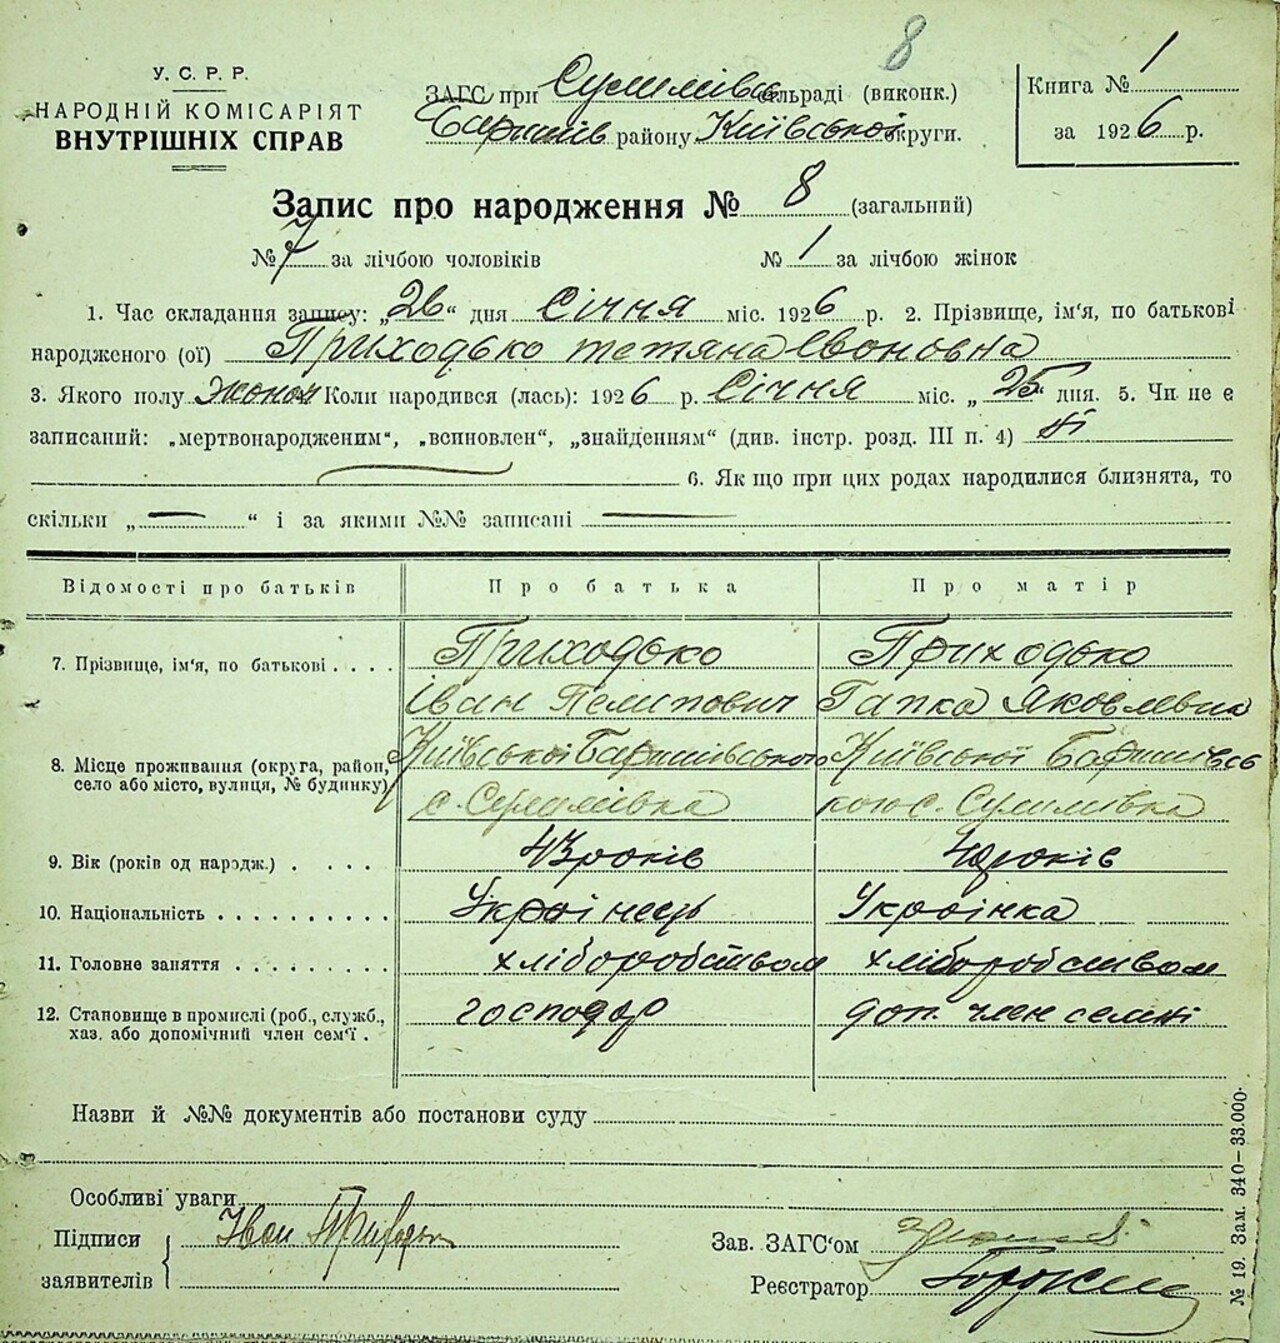 8
У. С. Р. Р.
НАРОДНІЙ КОМІСАРІЯТ
ВНУТРІШНІХ СПРАВ
ЗАГС при Сулимівс сільраді (виконк.)
Баришів району Київської округи.
Книга № 1
за 1926 р.
Запис про народження № 8 (загальний)
№ 7 за лічбою чоловіків № 1 за лічбою жінок
1. Час складання запису: „26“ дня Січня міс. 1926 р. 2. Прізвище, ім'я, по батькові
народженого (ої) Приходько Тетяна Івоновна
3. Якого полу жоноч Коли народився (лась): 1926 р. Січня міс. „25“ дня. 5. Чи не є
записаний: „мертвонародженим“, „всиновлен“, „знайденням“ (див. інстр. розд. III п. 4) Ні
6. Як що при цих родах народилися близнята, то
скільки „—“ і за якими №№ записані —
Відомості про батьків Про батька Про матір
7. Прізвище, ім'я, по батькові . . . . Приходько Приходько
Іван Пелипович Гапка Яковлевна
8. Місце проживання (округа, район, Київської Баришівського Київської Баришівсь
село або місто, вулиця, № будинку) с. Сулимівка кого с. Сулимівка
9. Вік (років од народж.) . . . . 43 років 40 років
10. Національність . . . . . . . . . . Украінець Украінка
11. Головне заняття . . . . . . . . . хліборобством хліборобством
12. Становище в промислі (роб., служб., господар доп. член семні
хаз. або допомічний член сем'ї .
Назви й №№ документів або постанови суду
Особливі уваги
Підписи Іван Приходько
заявителів
Зав. ЗАГС'ом
Реєстратор
№ 19. Зам. 340—33.000.